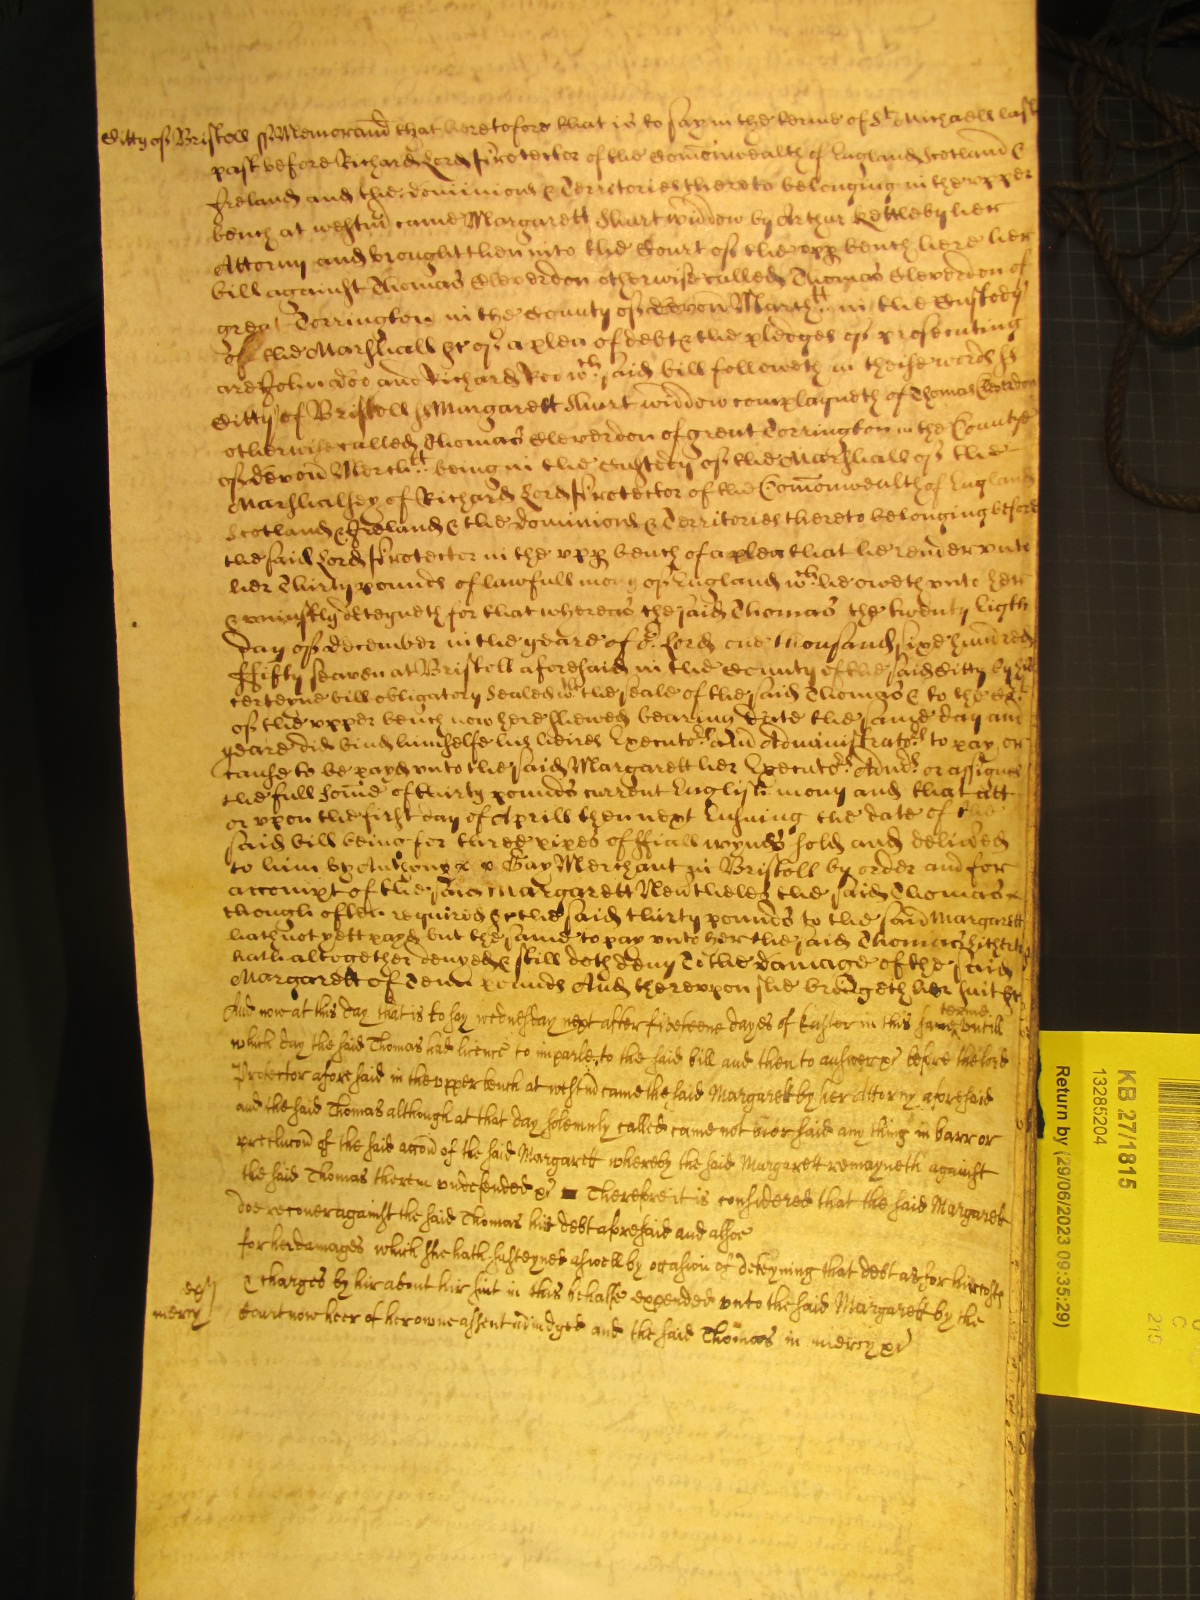 Citty of Bristoll ss Memorand that heretofore that is to say in the terme of St Michaell last
past before Richard Lord Protector of the Comonwealth of England Scotland &
Ireland and the dominions & Territories thereto belonging in the upper
bench at westm came Margarett Shurt widdow by Arthur Kettleby her
Attorny and brought then into the Court of the upp bench here her
bill against Thomas Cleverdon otherwise called Thomas Cleverdon of
great Torrington in the County of devon March:tt in the Custody
of the Marshall &c of a plea of debt & the pledges of prosecuting
are John doo and Richard Roo wch said bill followeth in theise words ss
Citty of Bristoll ss Margarett Shurt widdow complayneth of Thomas Cleverdon
otherwise called Thomas Cleverdon of great Torrington in the Countye
of devon Merch:tt being in the custody of the Marshall of the
Marshalsey of Richard Lord Protector of the Comonwealth of England
Scotland & Ireland & the dominions & Territories thereto belonging before
the said Lord Protector in the upp bench of a plea that he render unto
her Thirty pounds of lawfull mony of England wch he oweth unto her
& uniustly deteyneth for that whereas the said Thomas the twenty Eigth
day of december in the yeare of or Lord one thousand sixe hundred
ffifty seaven at Bristoll aforesaid in the County of the said Citty by his
certeyne bill obligatory sealed wth the seale of the said Thomas & to the Co:rt
of the upper bench now here shewed bearing date the same day and
yeare did bind himselfe his heires Executo:rs and Administrato:rs to pay or
cause to be payd unto the said Margarett her Executo:rs Adm:rs or assignes
the full some of thirty pounds current English mony and that att
or upon the first day of Aprill then next Ensuing the date of the
said bill being for three pipes of ffiall wynds sold and delived
to him by Anthony Gay Merchant in Bristoll by order and for
accompt of the said Margarett Nevtheles the said Thomas
though often required &c the said thirty pounds to the said Margarett
hath not yett payd but the same to pay unto her the said Thomas hitherto
hath altogether denyed & still doth deny To the damage of the said
Margarett of Tenn pounds And thereupon she bringeth her suit &c
And now at this day that is to say wednesday next after fifeteene dayes of Easter in this same terme untill
which day the said Thomas had licence to imparle to the said bill and then to answer &c before the lord
Protector aforesaid in the upper bench at westm came the said Margarett by her Attorny aforesaid
and the said Thomas although at that day solemnly called came not nor said any thing in barr or
preclucon of the said acon of the said Margarett whereby the said Margarett remayneth against
the said Thomas therein undefended &c Therefore it is considered that the said Margarett
doe recover against the said Thomas his debt aforesaid and alsoe
for her damages which she hath susteyned aswell by ocasion of deteyning that debt as for hir costs
& charges by hir about hir suit in this behalfe expended unto the said Margarett by the
Court now heer of her owne assent adiudged and the said Thomas in mercy &c
mercy
KB 27/1815
13285204
Return by (29/06/2023 09:35:29)